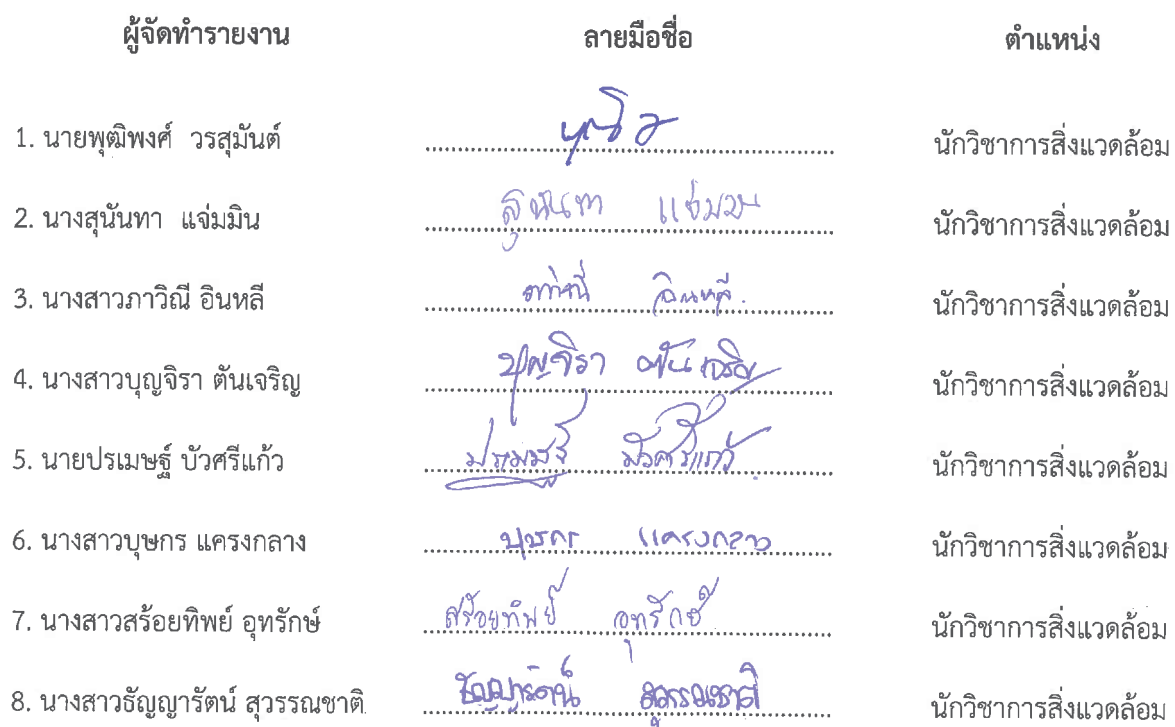 ผู้จัดทำรายงาน ลายมือชื่อ ตำแหน่ง
1. นายพุฒิพงศ์ วรสุมันต์ นักวิชาการสิ่งแวดล้อม
2. นางสุนันทา แจ่มมิน สุนันทา แจ่มมิน นักวิชาการสิ่งแวดล้อม
3. นางสาวภาวิณี อินหลี ภาวิณี อินหลี นักวิชาการสิ่งแวดล้อม
4. นางสาวบุญจิรา ตันเจริญ บุญจิรา ตันเจริญ นักวิชาการสิ่งแวดล้อม
5. นายปรเมษฐ์ บัวศรีแก้ว ปรเมษฐ์ บัวศรีแก้ว นักวิชาการสิ่งแวดล้อม
6. นางสาวบุษกร แครงกลาง บุษกร แครงกลาง นักวิชาการสิ่งแวดล้อม
7. นางสาวสร้อยทิพย์ อุทรักษ์ สร้อยทิพย์ อุทรักษ์ นักวิชาการสิ่งแวดล้อม
8. นางสาวธัญญารัตน์ สุวรรณชาติ ธัญญารัตน์ สุวรรณชาติ นักวิชาการสิ่งแวดล้อม